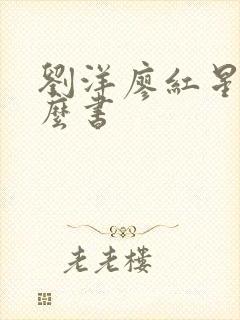 劉洋廖紅星
麼書
老老樓